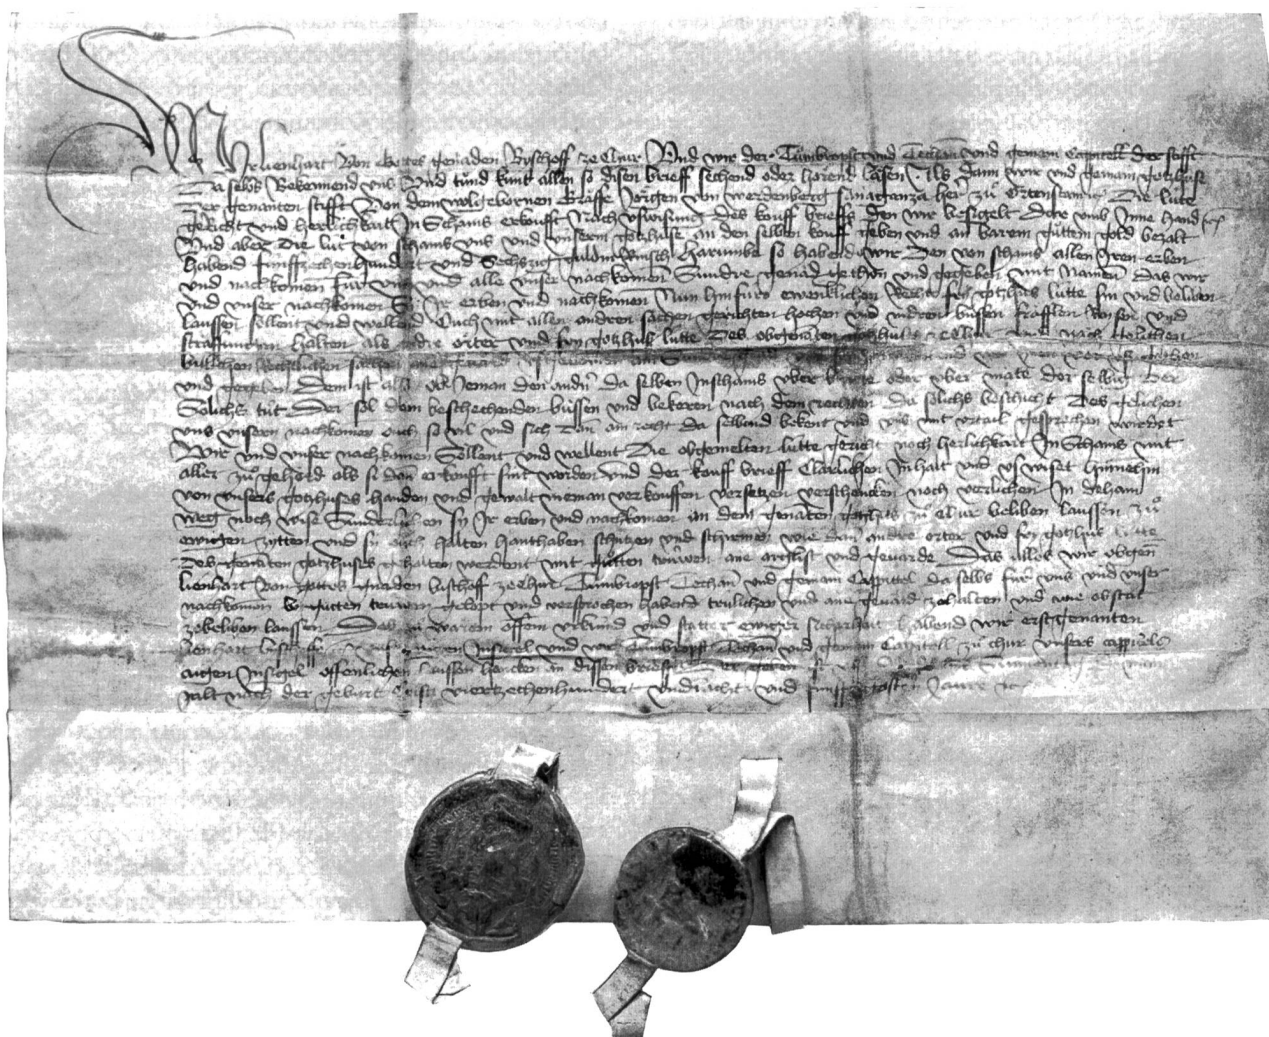 Wir lienhart Von Gottes genaden Byschoff ze Chur Und wir der Tumbropst und Techan und gemain Capittell der stifft
Da selbs Bekennend uns Und tund kunt allen so disen brieff sechend oder horend lesen Als dann wir und gemain gotzhuse
Der genanten stifft Von dem wolgebornen Graffe Jörgen von werdenberg Sanagganza her zu Ortenstain Die lute
gericht und herlichkait In Schams erkoufft Nach uswisung des kouff brieffs den wir besigelt dor umb Inne hand
Und aber Die lut von schams uns und unserm gotzhuse an den selben kouff geben und an barem guttem gold bezalt
habend funffzechenhundert und Sechszig guldin Rinsch Harumbe so habend wir Den von schams allen Iren erben
und nachkomen fur uns und alle unser nachkomen Sundre genad gethon und gegeben mit Namen das wir
und unser nachkomen Sy Ir erben und nachkomen Nun hinfuro ewenklichen Recht fry gotzhus lutte sin und beliben
laussen sollent und wellend Ouch mit allen andren sachen gerichten hochen und nidren bussen frafflen und
straffungen halten als andre örter und fry gotzhus lutte Des obgenanten gotzhus
und gegeben Dem ist also ob Jeman den andren da selben In schams uber oder uber mate der selbig Der
Solichs tut Der sol dem beschechenden bussen und bekeren nach dem rechten da solichs beschicht Des gelichen
uns unsern nachkomen ouch so vil und sich dan am recht da selbend bekent und uns mit urtail gesprochen wirdet
Wir und unser nachkomen Sollent und wellent Die obgemelten lutte gericht noch herlichkait In Schams mit
aller zu gehord als si dan erkoufft sint worden und der kouff brieff Clarlichen Inhalt und uswiset hinnethin
von unsers gotzhuses handen und gewalt nieman verkouffen versetzen verschencken noch verlichen In dehain
weg noch wise Sunderlichen sy Ir erben und nachkomen an dem genanten gotzhus zu Chur beliben laussen zu
ewigen zytten und sy ouch halten hanthaben schutzen und schirmen wie dan andre örter und fry gotzhus lutte
Des genanten gotzhuses gehalten werdent mit gutten truwen ane arglist und gevarde Das alles wir obgen
lienhart Von gottes genaden bischoff ze Chur Tumbropst Techan und gemain Cappittel da selbs fur uns und unser
nachkomen By gutten truwen gelopt und versprochen habend trulichen und ane gevard zehalten und wie obstat
zebeliben laussen Des zu warem offem urkund und statter ewiger sicharhait habend wir erstgenanten
lienhart bischoff Insigel und wir Tumbropst Techan und gemain Capittell zu chur unsers cappittels
aigen Insigel offenlichen laussen hencken an dissen brieff Der geben
zalt nach der geburt Cristi vierzechenhundert und acht und funffzigosten Jaure